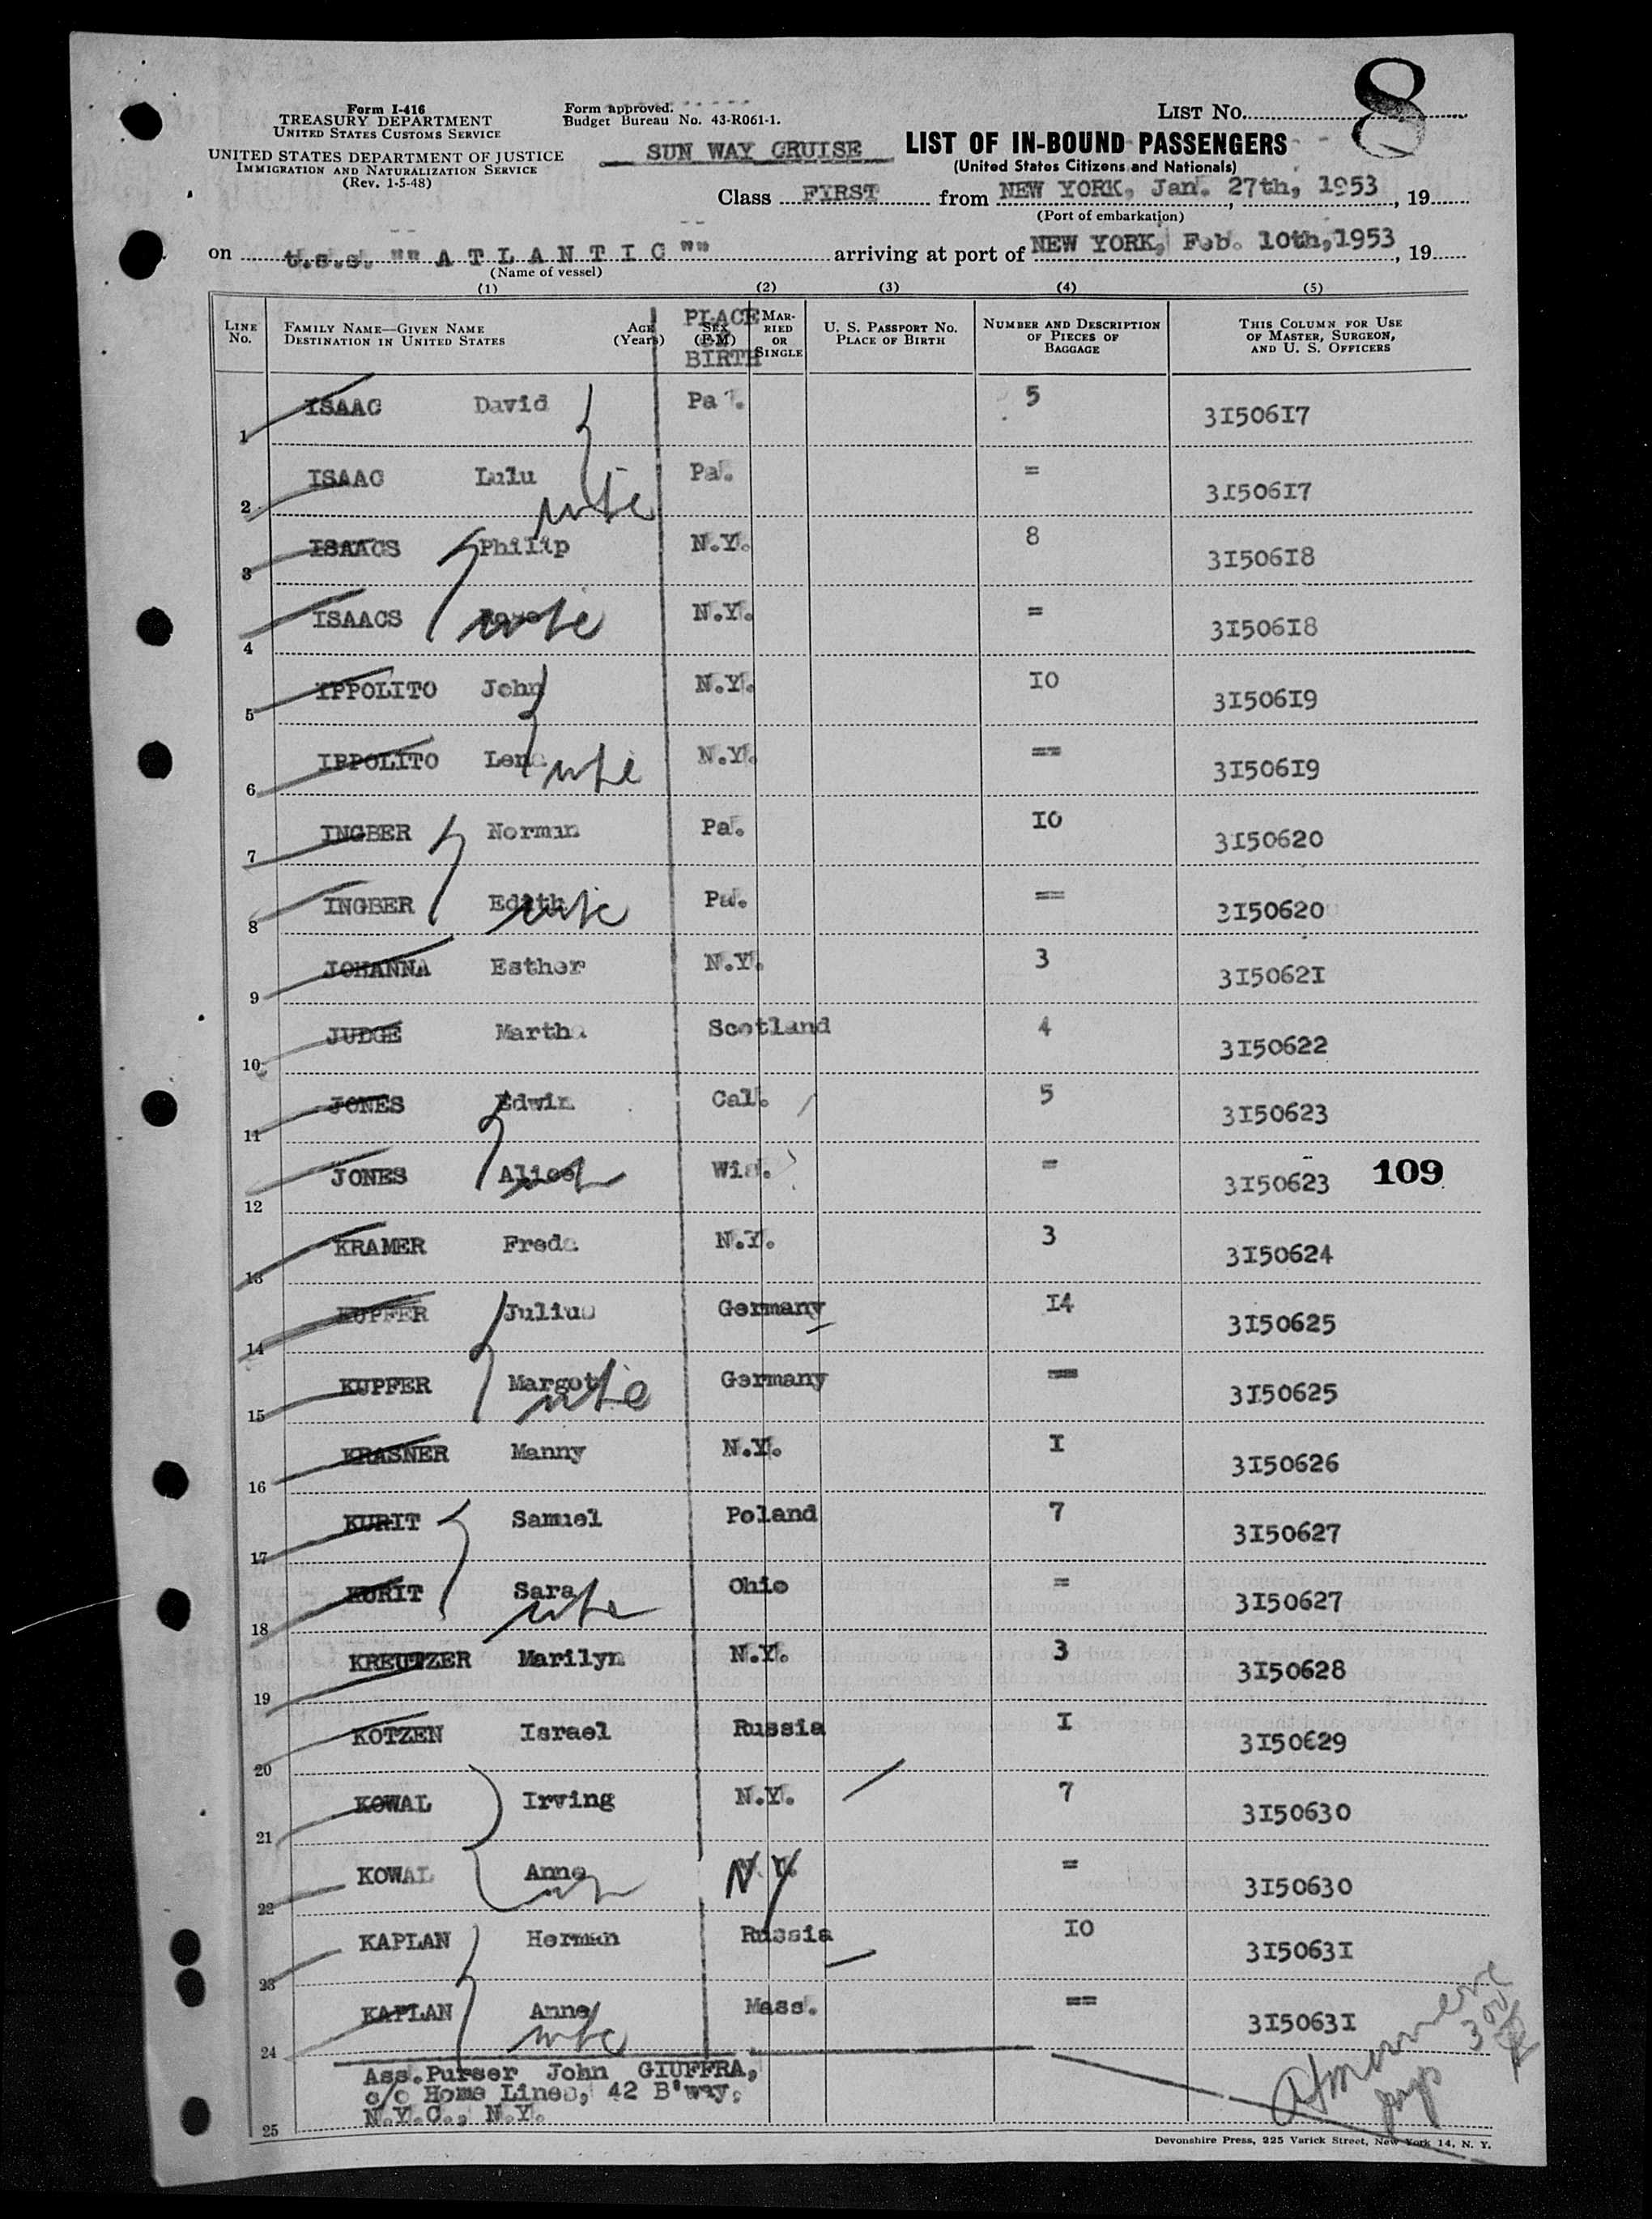 Form I-416
TREASURY DEPARTMENT
UNITED STATES CUSTOMS SERVICE
UNITED STATES DEPARTMENT OF JUSTICE
IMMIGRATION AND NATURALIZATION SERVICE
(Rev. 1-5-48)
Form approved.
Budget Bureau No. 43-R061-1.
LIST No. 8
SUN WAY CRUISE
LIST OF IN-BOUND PASSENGERS
(United States Citizens and Nationals)
Class FIRST from NEW YORK, Jan. 27th, 1953, 19
(Port of embarkation)
on t.s.s. "" A T L A N T I C "" arriving at port of NEW YORK, Feb. 10th, 1953, 19
(Name of vessel)
(1) (2) (3) (4) (5)
LINE No. FAMILY NAME—GIVEN NAME DESTINATION IN UNITED STATES AGE (Years) SEX (F-M) PLACE OF BIRTH MARRIED OR SINGLE U. S. PASSPORT NO. PLACE OF BIRTH NUMBER AND DESCRIPTION OF PIECES OF BAGGAGE THIS COLUMN FOR USE OF MASTER, SURGEON, AND U. S. OFFICERS
1 ISAAC David Pa. 5 3I506I7
2 ISAAC Lulu wife Pa. = 3I506I7
3 ISAACS Philip N.Y. 8 3I506I8
4 ISAACS wife N.Y. = 3I506I8
5 IPPOLITO John N.Y. IO 3I506I9
6 IPPOLITO Lena wife N.Y. == 3I506I9
7 INGBER Norman Pa. IO 3I50620
8 INGBER Edith wife Pa. == 3I50620
9 JOHANNA Esther N.Y. 3 3I5062I
10 JUDGE Martha Scotland 4 3I50622
11 JONES Edwin Cal. 5 3I50623
12 JONES Alice Wis. = 3I50623 109
13 KRAMER Freda N.Y. 3 3I50624
14 KUPFER Julius Germany I4 3I50625
15 KUPFER Margot wife Germany == 3I50625
16 KRASNER Manny N.Y. I 3I50626
17 KURIT Samuel Poland 7 3I50627
18 KURIT Sara wife Ohio = 3I50627
19 KREUTZER Marilyn N.Y. 3 3I50628
20 KOTZEN Israel Russia I 3I50629
21 KOWAL Irving N.Y. 7 3I50630
22 KOWAL Anne NY = 3I50630
23 KAPLAN Herman Russia IO 3I5063I
24 KAPLAN Anne wife Mass. == 3I5063I
25 Ass.Purser John GIUFFRA,
c/o Home Lines, 42 B'way,
N.Y.C., N.Y.
Devonshire Press, 225 Varick Street, New York 14, N. Y.